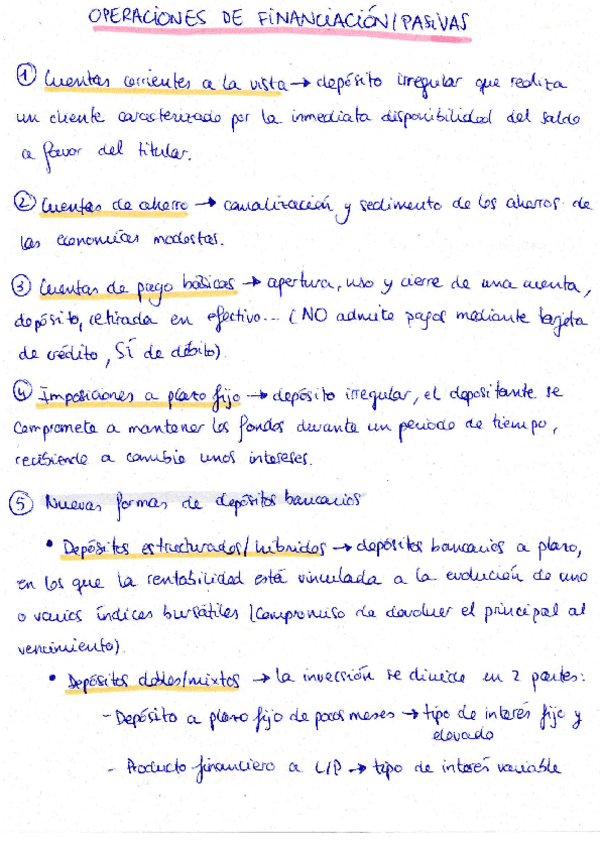 OPERACIONES DE FINANCIACIÓN/PASIVAS
① Cuentas corrientes a la vista → depósito irregular que realiza
un cliente caracterizado por la inmediata disponibilidad del saldo
a favor del titular.
② Cuentas de ahorro → canalización y sedimento de los ahorros de
las economías modestas.
③ Cuentas de pago básicas → apertura, uso y cierre de una cuenta,
depósito, retirada en efectivo... (NO admite pagos mediante tarjeta
de crédito, SÍ de débito).
④ Imposiciones a plazo fijo → depósito irregular, el depositante se
compromete a mantener los fondos durante un periodo de tiempo,
recibiendo a cambio unos intereses.
⑤ Nuevas formas de depósitos bancarios
• Depósitos estructurados/híbridos → depósitos bancarios a plazo,
en los que la rentabilidad está vinculada a la evolución de uno
o varios índices bursátiles (compromiso de devolver el principal al
vencimiento).
• Depósitos dobles/mixtos → la inversión se divide en 2 partes:
- Depósito a plazo fijo de pocos meses → tipo de interés fijo y
elevado
- Producto financiero a L/P → tipo de interés variable